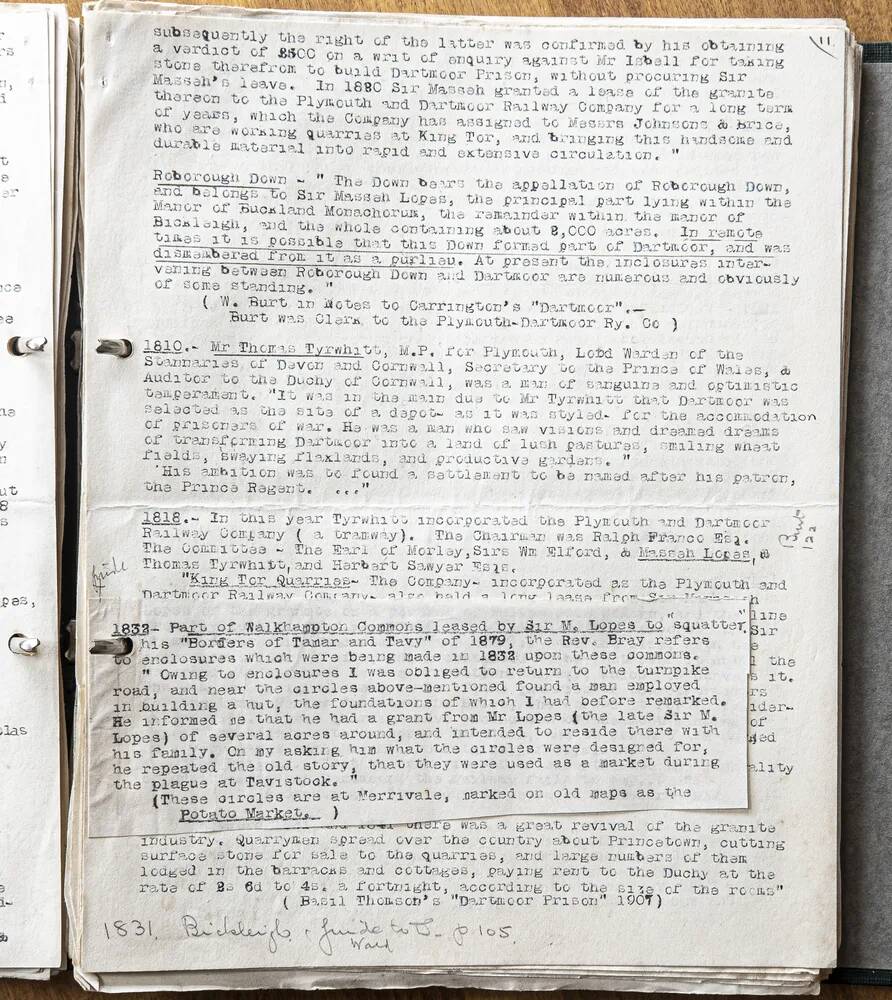 11.
subsequently the right of the latter was confirmed by his obtaining
a verdict of £500 on a writ of enquiry against Mr Isbell for taking
stone therefrom to build Dartmoor Prison, without procuring Sir
Masseh's leave. In 1820 Sir Masseh granted a lease of the granite
thereon to the Plymouth and Dartmoor Railway Company for a long term
of years, which the Company has assigned to Messrs Johnsons & Brice,
who are working quarries at King Tor, and bringing this handsome and
durable material into rapid and extensive circulation. "
Roborough Down - " The Down bears the appellation of Roborough Down,
and belongs to Sir Masseh Lopes, the principal part lying within the
Manor of Buckland Monachorum, the remainder within the manor of
Bickleigh, and the whole containing about 2,000 acres. In remote
times it is possible that this Down formed part of Dartmoor, and was
dismembered from it as a purlieu. At present the inclosures inter-
vening between Roborough Down and Dartmoor are numerous and obviously
of some standing. "
( W. Burt in Notes to Carrington's "Dartmoor".—
Burt was Clerk to the Plymouth-Dartmoor Ry. Co )
1810.- Mr Thomas Tyrwhitt, M.P. for Plymouth, Lord Warden of the
Stannaries of Devon and Cornwall, Secretary to the Prince of Wales, &
Auditor to the Duchy of Cornwall, was a man of sanguine and optimistic
temperament. "It was in the main due to Mr Tyrwhitt that Dartmoor was
selected as the site of a depot- as it was styled- for the accommodation
of prisoners of war. He was a man who saw visions and dreamed dreams
of transforming Dartmoor into a land of lush pastures, smiling wheat
fields, swaying flaxlands, and productive gardens. "
'His ambition was to found a settlement to be named after his patron,
the Prince Regent. ..."
1818.- In this year Tyrwhitt incorporated the Plymouth and Dartmoor
Railway Company ( a tramway). The Chairman was Ralph Franco Esq.
The Committee - The Earl of Morley,Sirs Wm Elford, & Masseh Lopes, &
Thomas Tyrwhitt,and Herbert Sawyer Esqs.
"King Tor Quarries- The Company- incorporated as the Plymouth and
Dartmoor Railway Company- also held a long lease from Sir
1832- Part of Walkhampton Commons leased by Sir M. Lopes to "squatter."
his "Borders of Tamar and Tavy" of 1879, the Rev. Bray refers
to enclosures which were being made in 1832 upon these commons.
" Owing to enclosures I was obliged to return to the turnpike
road, and near the circles above-mentioned found a man employed
in building a hut, the foundations of which I had before remarked.
He informed me that he had a grant from Mr Lopes (the late Sir M.
Lopes) of several acres around, and intended to reside there with
his family. On my asking him what the circles were designed for,
he repeated the old story, that they were used as a market during
the plague at Tavistock. "
(These circles are at Merrivale, marked on old maps as the
Potato Market. )
there was a great revival of the granite
industry. Quarrymen spread over the country about Princetown, cutting
surface stone for sale to the quarries, and large numbers of them
lodged in the barracks and cottages, paying rent to the Duchy at the
rate of 2s 6d to 4s. a fortnight, according to the size of the rooms"
( Basil Thomson's "Dartmoor Prison" 1907)
1831. Bickleigh. Guide to p 105.
Ward